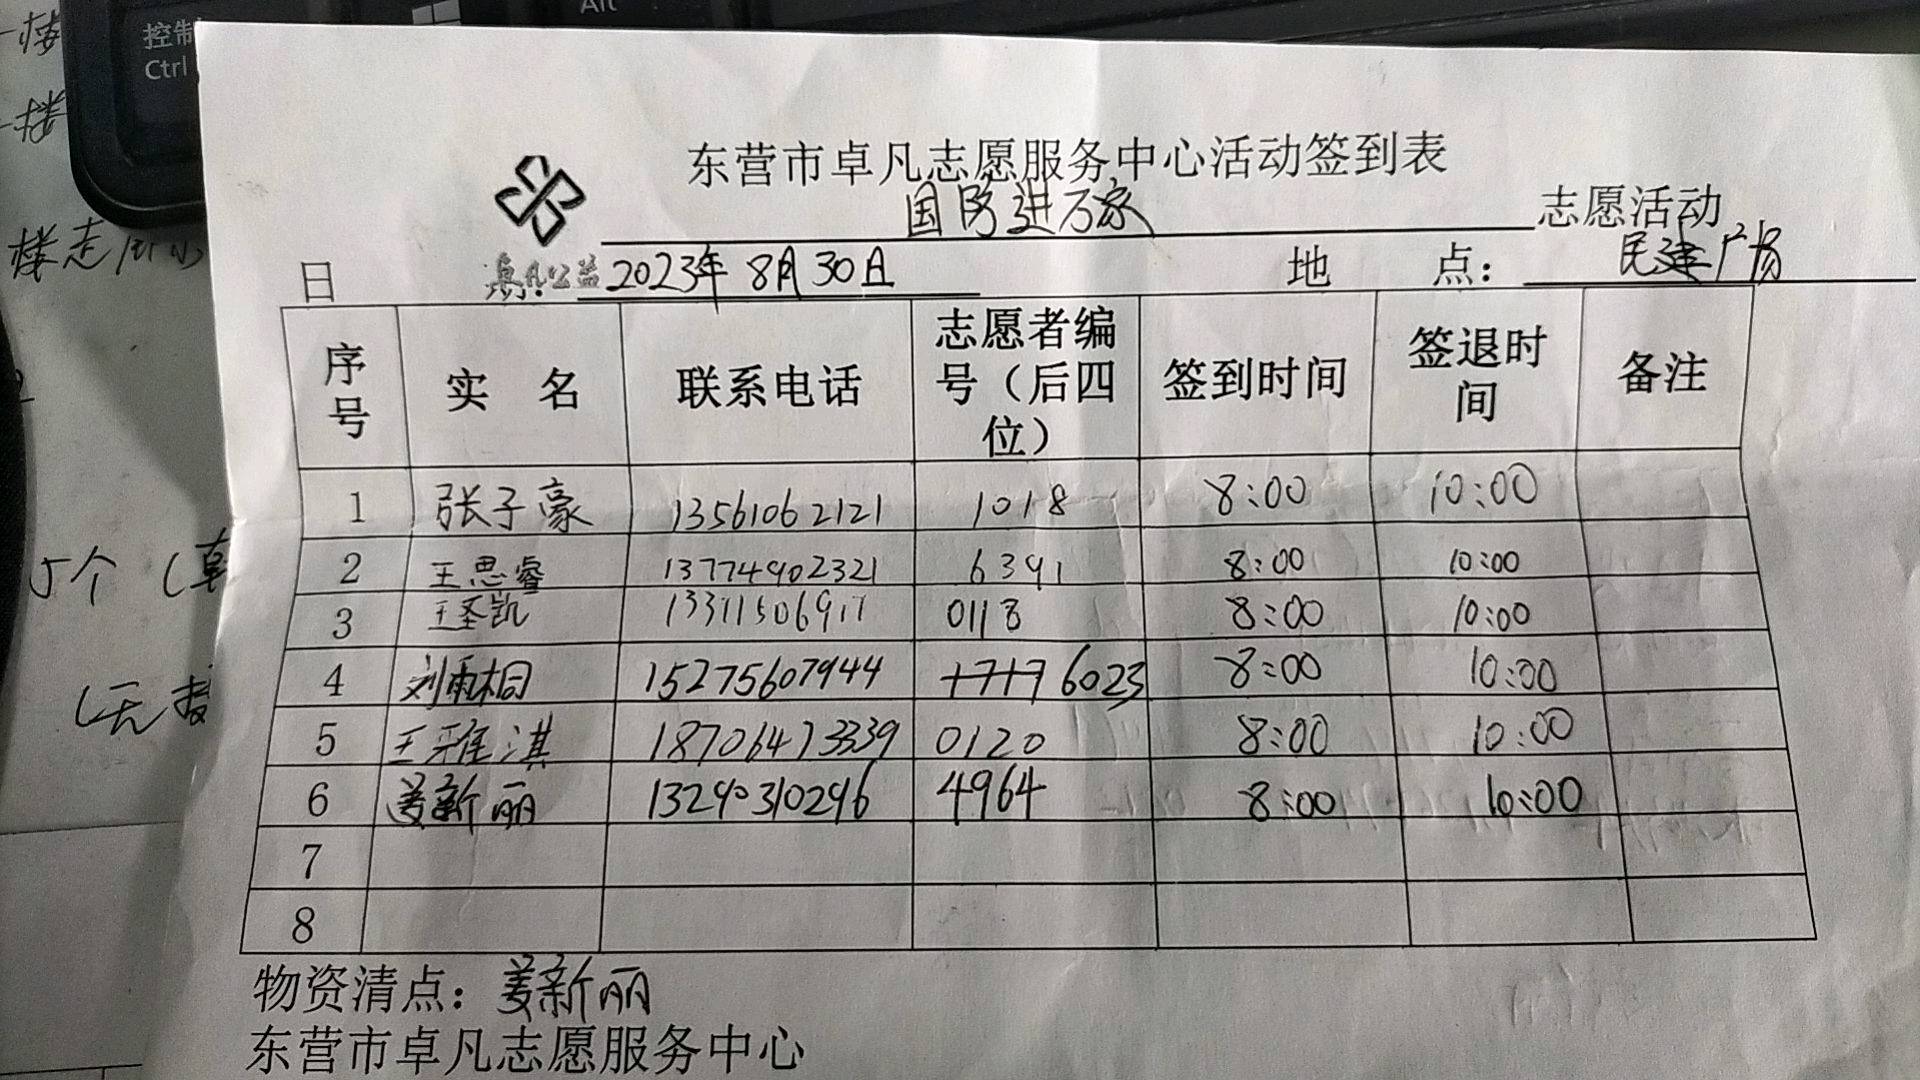 控制
Ctrl
Alt
楼
楼
东营市卓凡志愿服务中心活动签到表
国防进万家 志愿活动
卓凡公益
日 2023年8月30日 地 点： 民建广场
序号 实 名 联系电话 志愿者编号（后四位） 签到时间 签退时间 备注
1 张子豪 13561062121 1018 8:00 10:00
2 王思睿 13774902321 6391 8:00 10:00
3 王圣凯 13311506911 0118 8:00 10:00
4 刘雨桐 15275607944 1717 6023 8:00 10:00
5 王雅淇 18706473339 0120 8:00 10:00
6 姜新丽 13290310296 4964 8:00 10:00
7
8
5个（
物资清点：姜新丽
东营市卓凡志愿服务中心